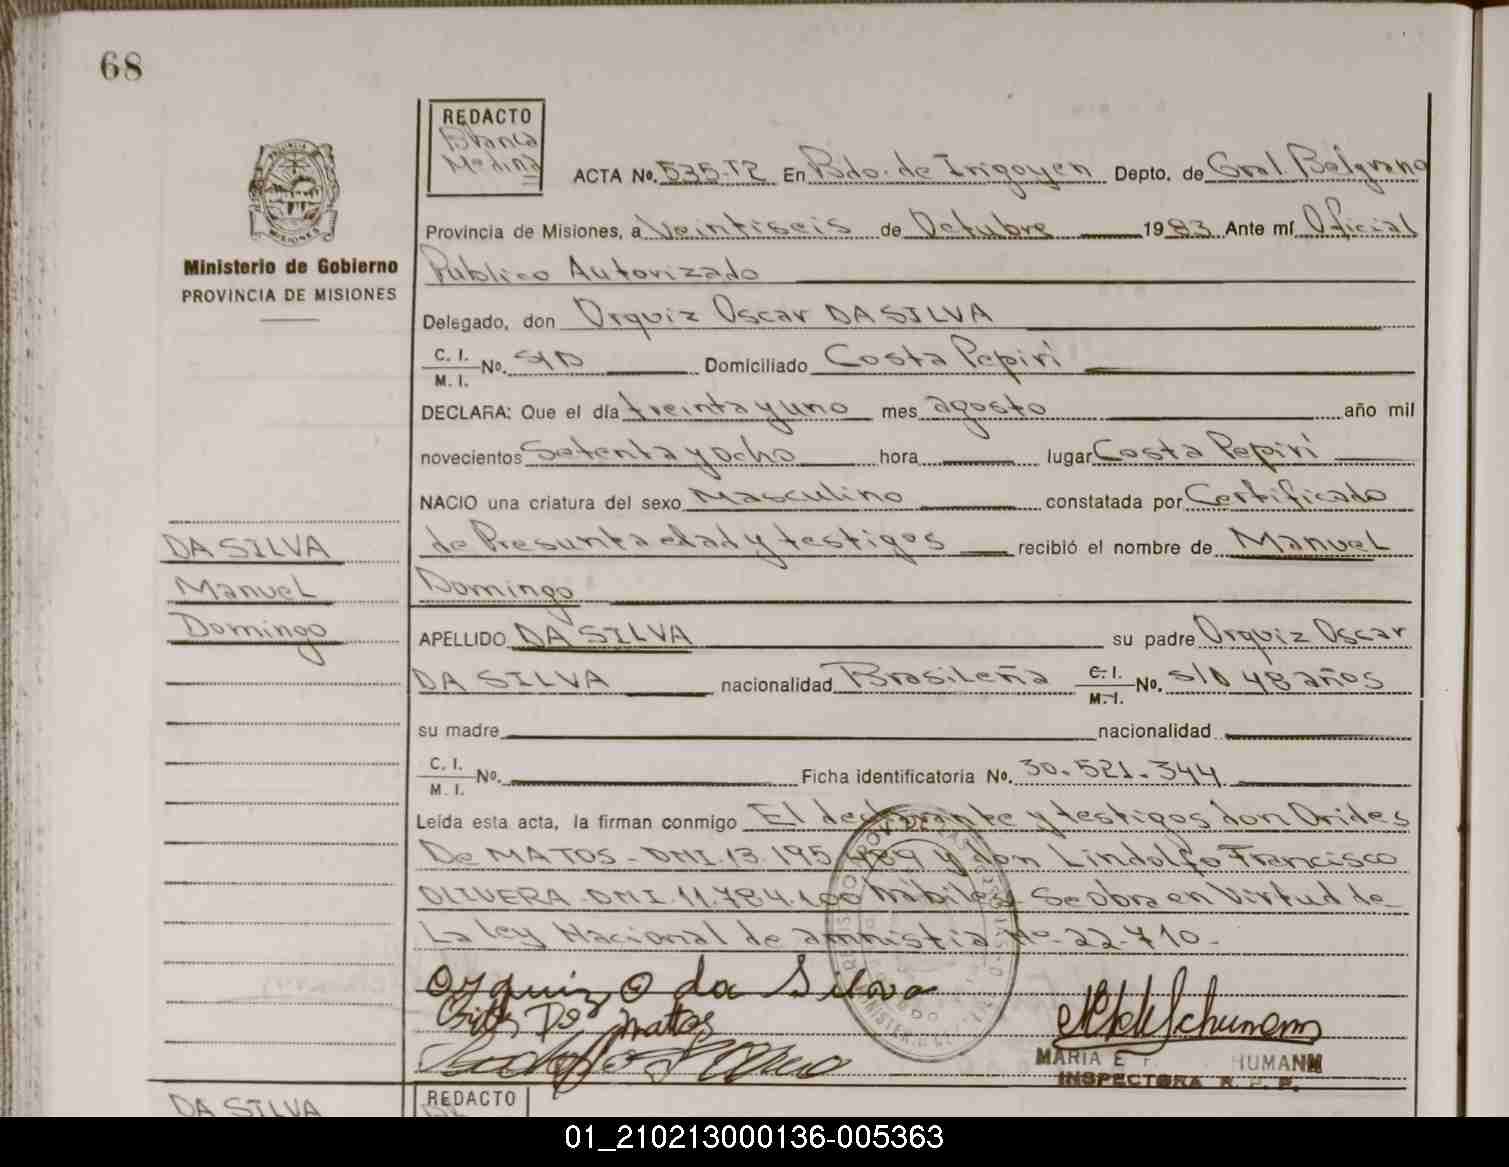 68
REDACTO
Blanca
Medina
ACTA No. 535-T2 En Bdo. de Irigoyen Depto. de Gral. Belgrano
Provincia de Misiones, a veintiseis de Octubre 1983 Ante mí Oficial
Ministerio de Gobierno
Público Autorizado
PROVINCIA DE MISIONES
Delegado, don Orquiz Oscar DA SILVA
C. I.
M. I. No. S/D Domiciliado Costa Pepirí
DECLARA: Que el día treinta y uno mes agosto año mil
novecientos Setenta y ocho hora lugar Costa Pepirí
NACIO una criatura del sexo Masculino constatada por Certificado
de Presunta edad y testigos recibió el nombre de Manuel
Domingo
DA SILVA
Manuel
Domingo
APELLIDO DA SILVA su padre Orquiz Oscar
DA SILVA nacionalidad Brasileña C. I.
M. I. No. S/D 48 años
su madre nacionalidad
C. I.
M. I. No. Ficha identificatoria No. 30.521.344
Leída esta acta, la firman conmigo El declarante y testigos don Orides
De MATOS - DNI. 13.195.489 y don Lindolfo Francisco
OLIVERA - DNI. 11.784.100 hábiles Se obra en Virtud de
La ley Nacional de amnistia No. 22.710.
orquiz o da Silva
De matos
MARIA E HUMANN
INSPECTORA R. P. P.
DA SILVA
REDACTO
01_210213000136-005363